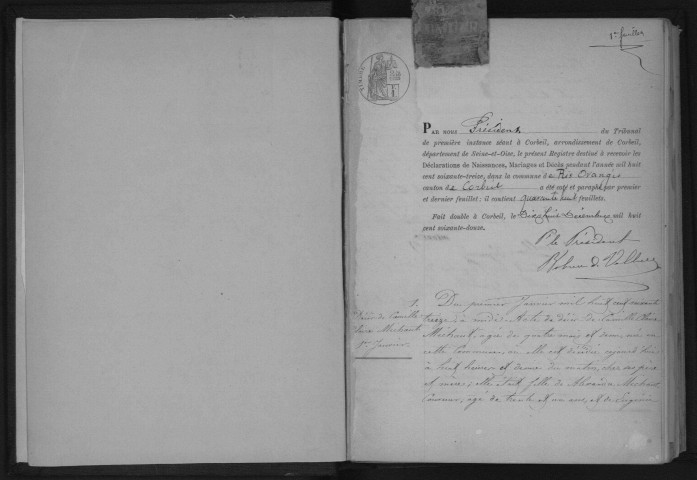 1er feuillet
TIMBRE
PAR NOUS Président du Tribunal
de première instance séant à Corbeil, arrondissement de Corbeil,
département de Seine-et-Oise, le présent Registre destiné à recevoir les
Déclarations de Naissances, Mariages et Décès pendant l'année mil huit
cent soixante-treize, dans la commune de Ris Orangis
canton de Corbeil a été coté et paraphé par premier
et dernier feuillet: il contient quarante huit feuillets.
Fait double à Corbeil, le Dix huit Décembre mil huit
cent soixante-douze.
Pr le Président
1.
Décès de Camille
Méchaut
1er Janvier
Du premier Janvier mil huit cent soixante
treize à midi. Acte de décès de Camille
Méchaut, agée de quatre mois et demi, née en
cette Commune, où elle est décédée
à huit heures et demie du matin, chez ses père
et mère; elle était fille de Méchaut
agé de trente et un ans, et de Eugénie